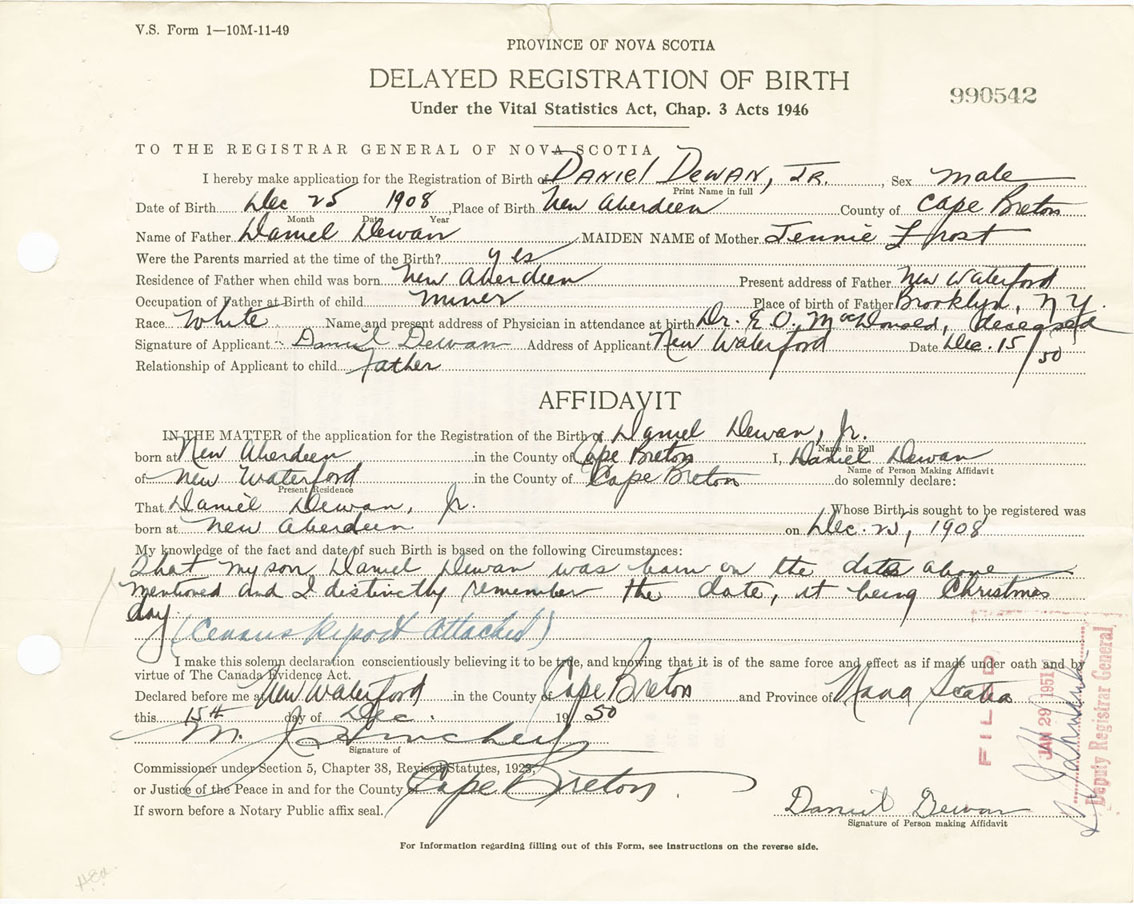 V.S. Form 1—10M-11-49
PROVINCE OF NOVA SCOTIA
DELAYED REGISTRATION OF BIRTH
990542
Under the Vital Statistics Act, Chap. 3 Acts 1946
TO THE REGISTRAR GENERAL OF NOVA SCOTIA
I hereby make application for the Registration of Birth of DANIEL DEWAN, JR. , Sex male
Print Name in full
Date of Birth Dec 25 1908 , Place of Birth New Aberdeen County of Cape Breton
Month Date Year
Name of Father Daniel Dewan MAIDEN NAME of Mother Jennie Frost
Were the Parents married at the time of the Birth? yes
Residence of Father when child was born New Aberdeen Present address of Father New Waterford
Occupation of Father at Birth of child miner Place of birth of Father Brooklyn, N.Y.
Race White Name and present address of Physician in attendance at birth Dr. E.O. MacDonald, deseased
Signature of Applicant Daniel Dewan Address of Applicant New Waterford Date Dec. 15/50
Relationship of Applicant to child father
AFFIDAVIT
IN THE MATTER of the application for the Registration of the Birth of Daniel Dewan, Jr.
Name in Full
born at New Aberdeen in the County of Cape Breton I, Daniel Dewan
Name of Person Making Affidavit
of New Waterford in the County of Cape Breton do solemnly declare:
Present Residence
That Daniel Dewan, Jr. Whose Birth is sought to be registered was
born at New Aberdeen on Dec. 25, 1908
My knowledge of the fact and date of such Birth is based on the following Circumstances:
That my son Daniel Dewan was born on the date above
mentioned and I distinctly remember the date, it being Christmas
day (Census Report attached)
I make this solemn declaration conscientiously believing it to be true, and knowing that it is of the same force and effect as if made under oath and by
virtue of The Canada Evidence Act.
Declared before me at New Waterford in the County of Cape Breton and Province of Nova Scotia
this 15th day of Dec. 1950
M. J.
Signature of
Commissioner under Section 5, Chapter 38, Revised Statutes, 1923,
or Justice of the Peace in and for the County of Cape Breton.
If sworn before a Notary Public affix seal.
Daniel Dewan
Signature of Person making Affidavit
FILED
JAN 29 1951
Deputy Registrar General
For Information regarding filling out of this Form, see instructions on the reverse side.